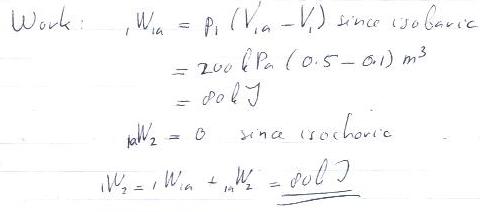 Work: ₁W₁ₐ = p₁ (V₁ₐ - V₁) since isobaric
= 200 kPa (0.5 - 0.1) m³
= 80 kJ
₁ₐW₂ = 0 since isochoric
₁W₂ = ₁W₁ₐ + ₁ₐW₂ = 80 kJ